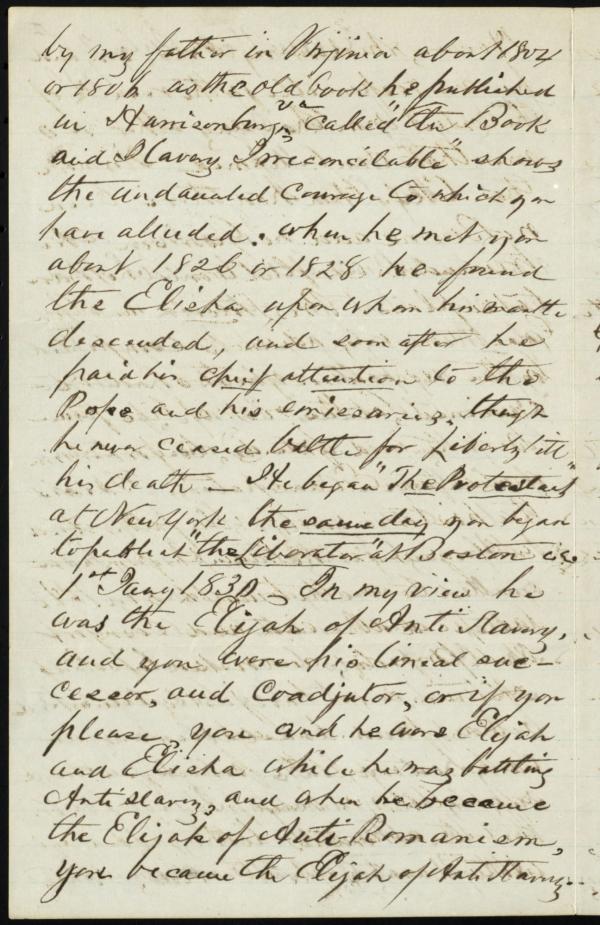 by my father in Virginia about 1804
or 1806 as the old book he published
in Harrisonburg, Va called "the Book
and Slavery Irreconcilable" shows
the undaunted courage to which you
have alluded. When he met you
about 1826 or 1828 he found
the Elisha upon whom his mantle
descended, and soon after he
paid his chief attention to the
Pope and his emissaries, though
he never ceased battle for liberty till
his death — He began "The Protestant"
at New York the same day you began
to publish "the Liberator" at Boston
1st Jany 1830 — In my view he
was the Elijah of Anti Slavery,
and you were his lineal suc-
cessor, and Coadjutor, or if you
please, you and he were Elijah
and Elisha while he was battling
Anti slavery, and when he became
the Elijah of Anti-Romanism,
you became the Elijah of Anti Slavery.